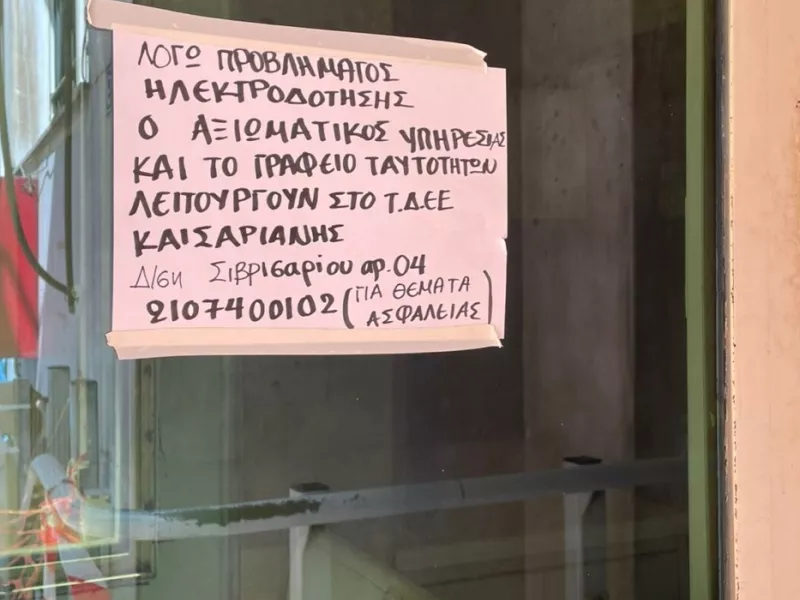 ΛΟΓΩ ΠΡΟΒΛΗΜΑΤΟΣ
ΗΛΕΚΤΡΟΔΟΤΗΣΗΣ
Ο ΑΞΙΩΜΑΤΙΚΟΣ ΥΠΗΡΕΣΙΑΣ
ΚΑΙ ΤΟ ΓΡΑΦΕΙΟ ΤΑΥΤΟΤΗΤΩΝ
ΛΕΙΤΟΥΡΓΟΥΝ ΣΤΟ Τ.Δ.ΕΕ
ΚΑΙΣΑΡΙΑΝΗΣ
Δ/ση Σιβρισαρίου αρ. 04
2107400102 (ΓΙΑ ΘΕΜΑΤΑ
ΑΣΦΑΛΕΙΑΣ)